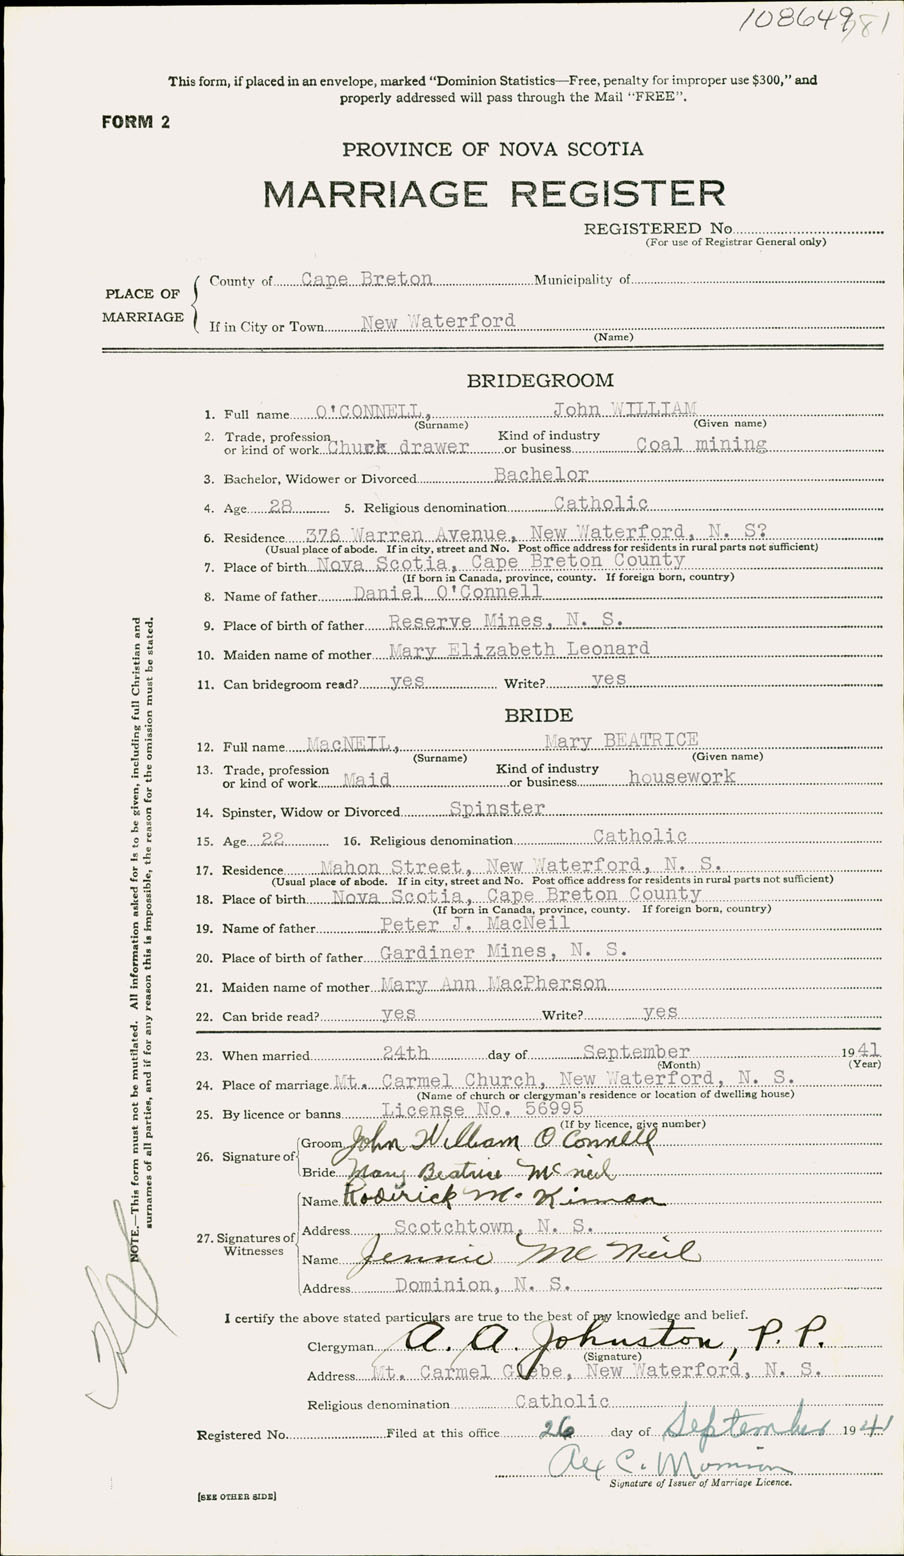 108649/81
This form, if placed in an envelope, marked "Dominion Statistics—Free, penalty for improper use $300," and
properly addressed will pass through the Mail "FREE".
FORM 2
PROVINCE OF NOVA SCOTIA
MARRIAGE REGISTER
REGISTERED No.
(For use of Registrar General only)
PLACE OF MARRIAGE
County of Cape Breton Municipality of
If in City or Town New Waterford
(Name)
BRIDEGROOM
1. Full name O'CONNELL, John WILLIAM
(Surname) (Given name)
2. Trade, profession or kind of work Chuck drawer Kind of industry or business Coal mining
3. Bachelor, Widower or Divorced Bachelor
4. Age 28 5. Religious denomination Catholic
6. Residence 376 Warren Avenue, New Waterford, N. S?
(Usual place of abode. If in city, street and No. Post office address for residents in rural parts not sufficient)
7. Place of birth Nova Scotia, Cape Breton County
(If born in Canada, province, county. If foreign born, country)
8. Name of father Daniel O'Connell
9. Place of birth of father Reserve Mines, N. S.
10. Maiden name of mother Mary Elizabeth Leonard
11. Can bridegroom read? yes Write? yes
BRIDE
12. Full name MacNEIL, Mary BEATRICE
(Surname) (Given name)
13. Trade, profession or kind of work Maid Kind of industry or business housework
14. Spinster, Widow or Divorced Spinster
15. Age 22 16. Religious denomination Catholic
17. Residence Mahon Street, New Waterford, N. S.
(Usual place of abode. If in city, street and No. Post office address for residents in rural parts not sufficient)
18. Place of birth Nova Scotia, Cape Breton County
(If born in Canada, province, county. If foreign born, country)
19. Name of father Peter J. MacNeil
20. Place of birth of father Gardiner Mines, N. S.
21. Maiden name of mother Mary Ann MacPherson
22. Can bride read? yes Write? yes
23. When married 24th day of September 1941
(Month) (Year)
24. Place of marriage Mt. Carmel Church, New Waterford, N. S.
(Name of church or clergyman's residence or location of dwelling house)
25. By licence or banns License No. 56995
(If by licence, give number)
26. Signature of
Groom John William O'Connell
Bride Mary Beatrice McNeil
27. Signatures of Witnesses
Name Roderick McKinnon
Address Scotchtown, N. S.
Name Jennie McNeil
Address Dominion, N. S.
I certify the above stated particulars are true to the best of my knowledge and belief.
Clergyman A. A. Johnston, P. P.
(Signature)
Address Mt. Carmel Glebe, New Waterford, N. S.
Religious denomination Catholic
Registered No. Filed at this office 26 day of September 1941
Alex C. Morrison
Signature of Issuer of Marriage Licence.
[SEE OTHER SIDE]
NOTE.—This form must not be mutilated. All information asked for is to be given, including full Christian and
surnames of all parties, and if for any reason this is impossible, the reason for the omission must be stated.